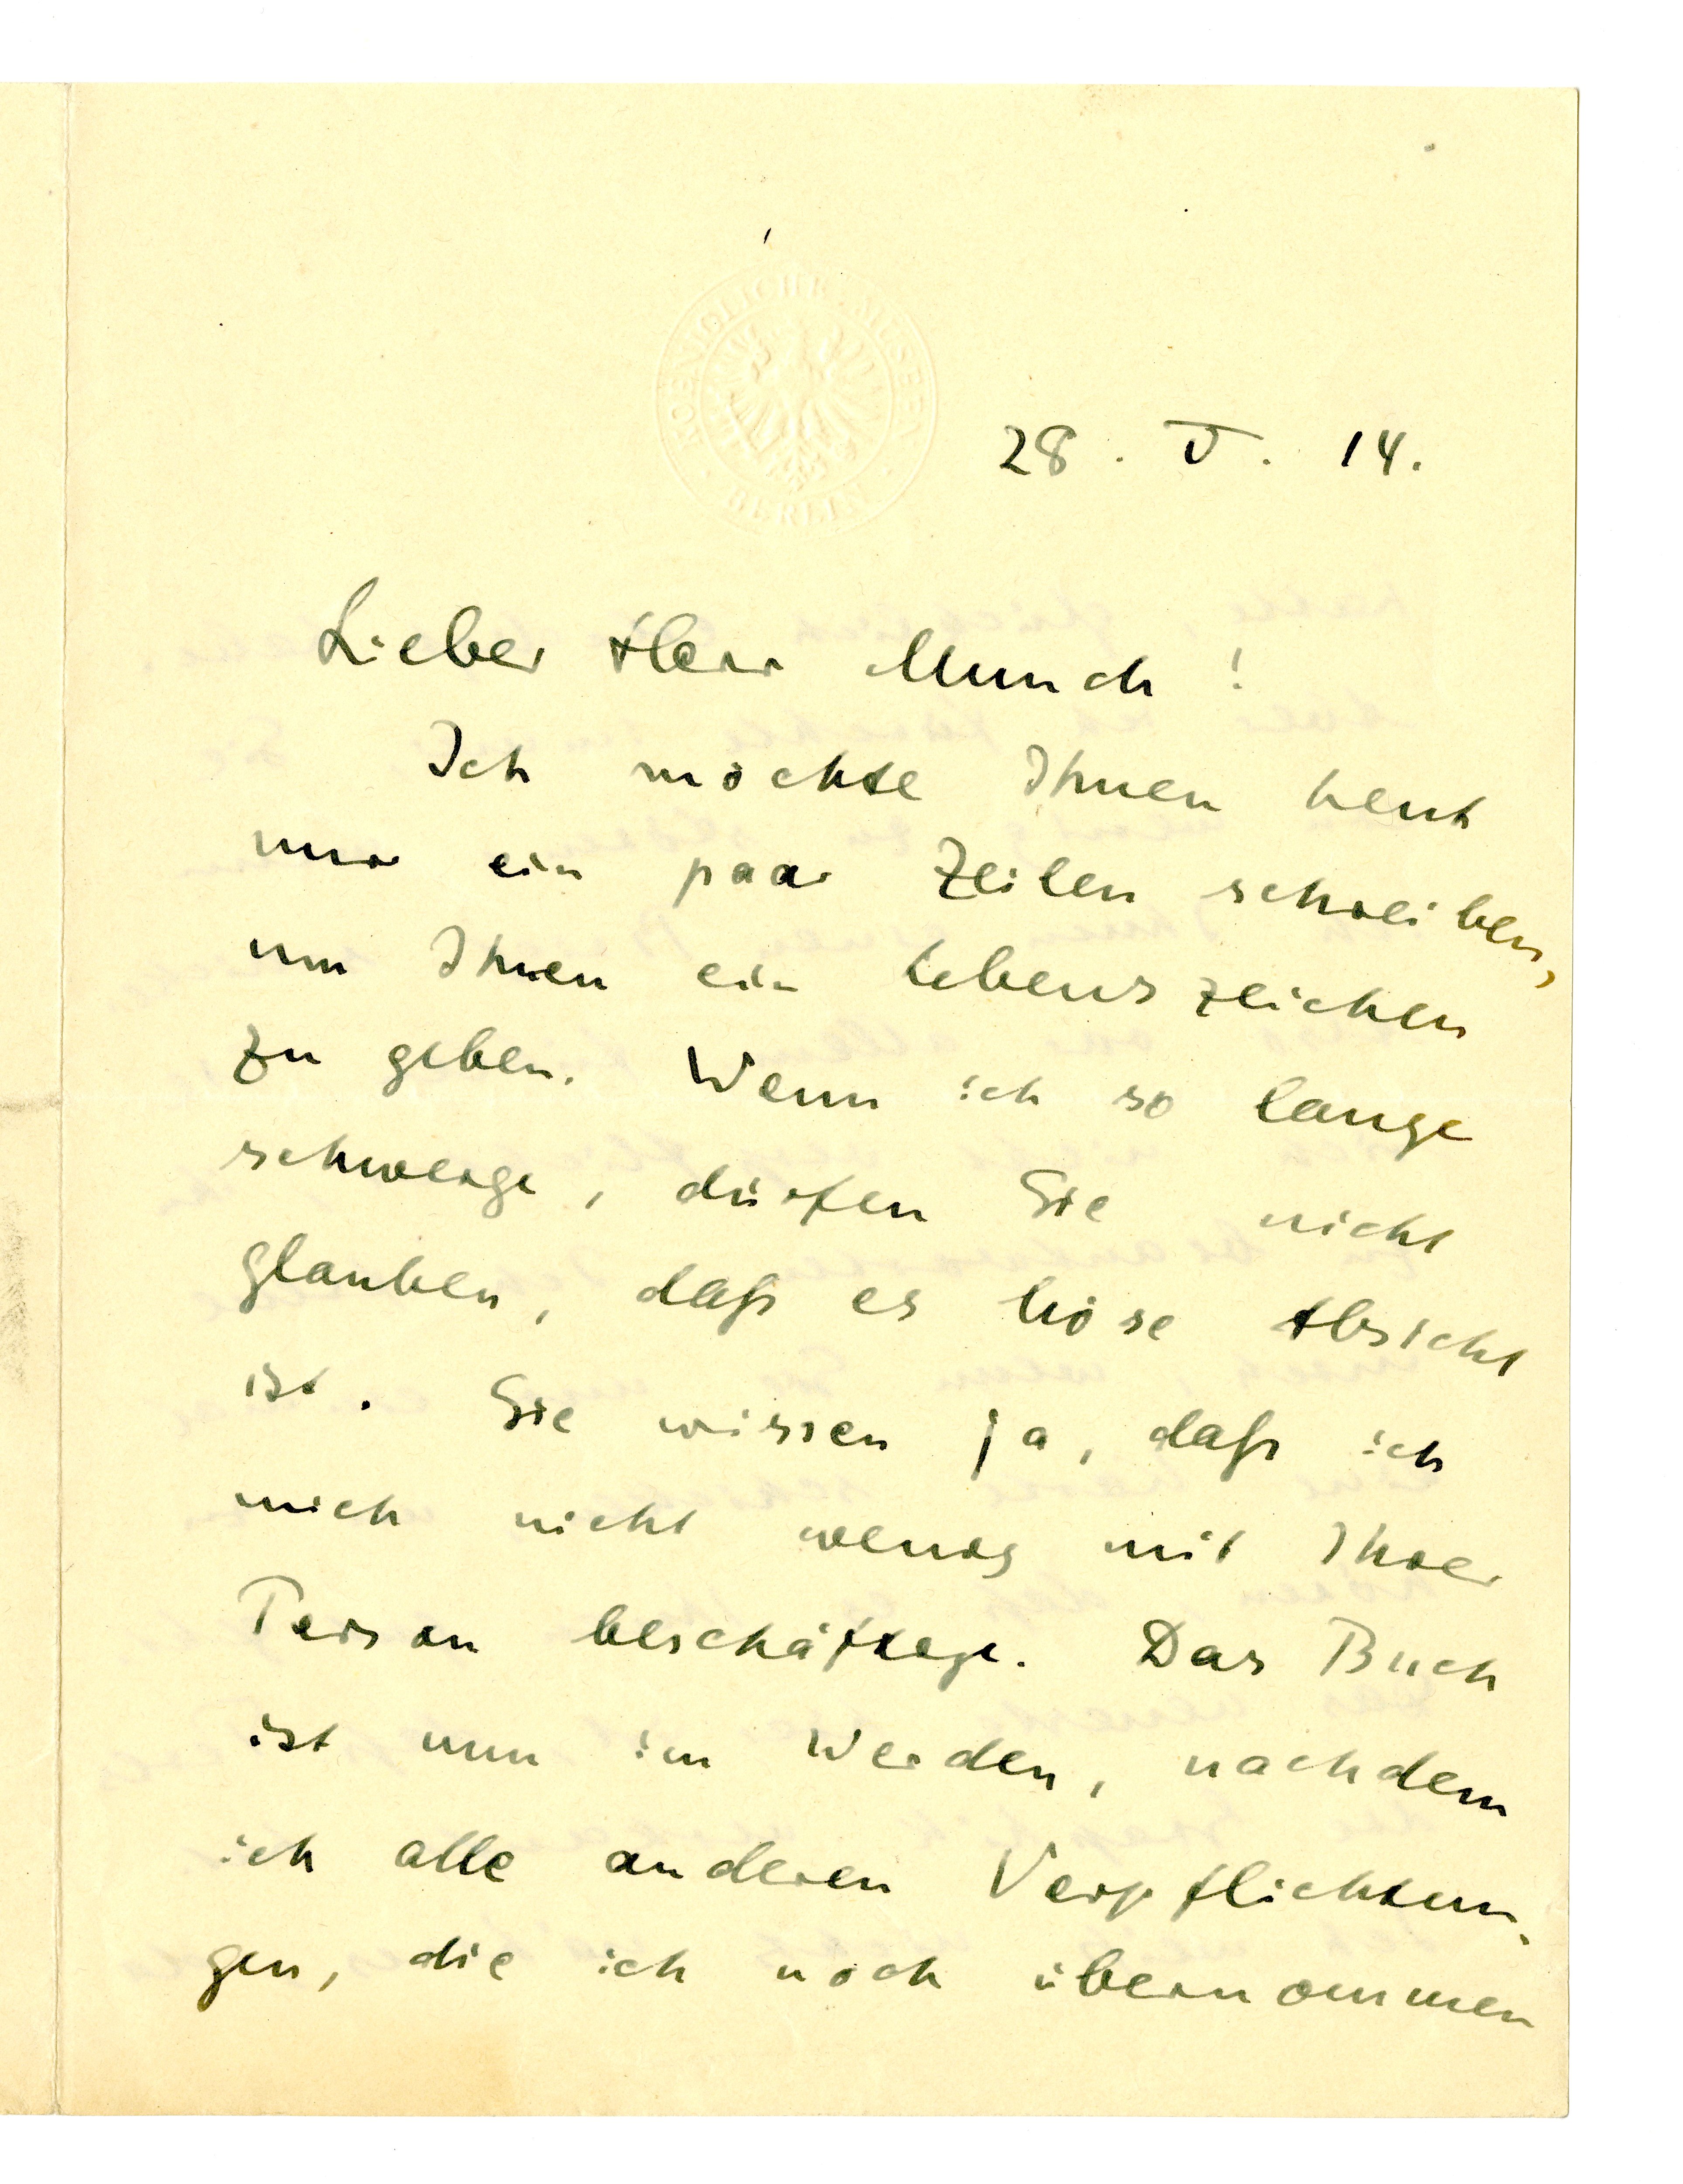 KOENIGLICHE MUSEEN
BERLIN
28. V. 14.
Lieber Herr Munch!
Ich möchte Ihnen heut
nur ein paar Zeilen schreiben,
um Ihnen ein Lebenszeichen
zu geben. Wenn ich so lange
schweige, dürfen Sie nicht
glauben, daß es böse Absicht
ist. Sie wissen ja, daß ich
mich nicht wenig mit Ihrer
Person beschäftige. Das Buch
ist nun im Werden, nachdem
ich alle anderen Verpflichtun-
gen, die ich noch übernommen